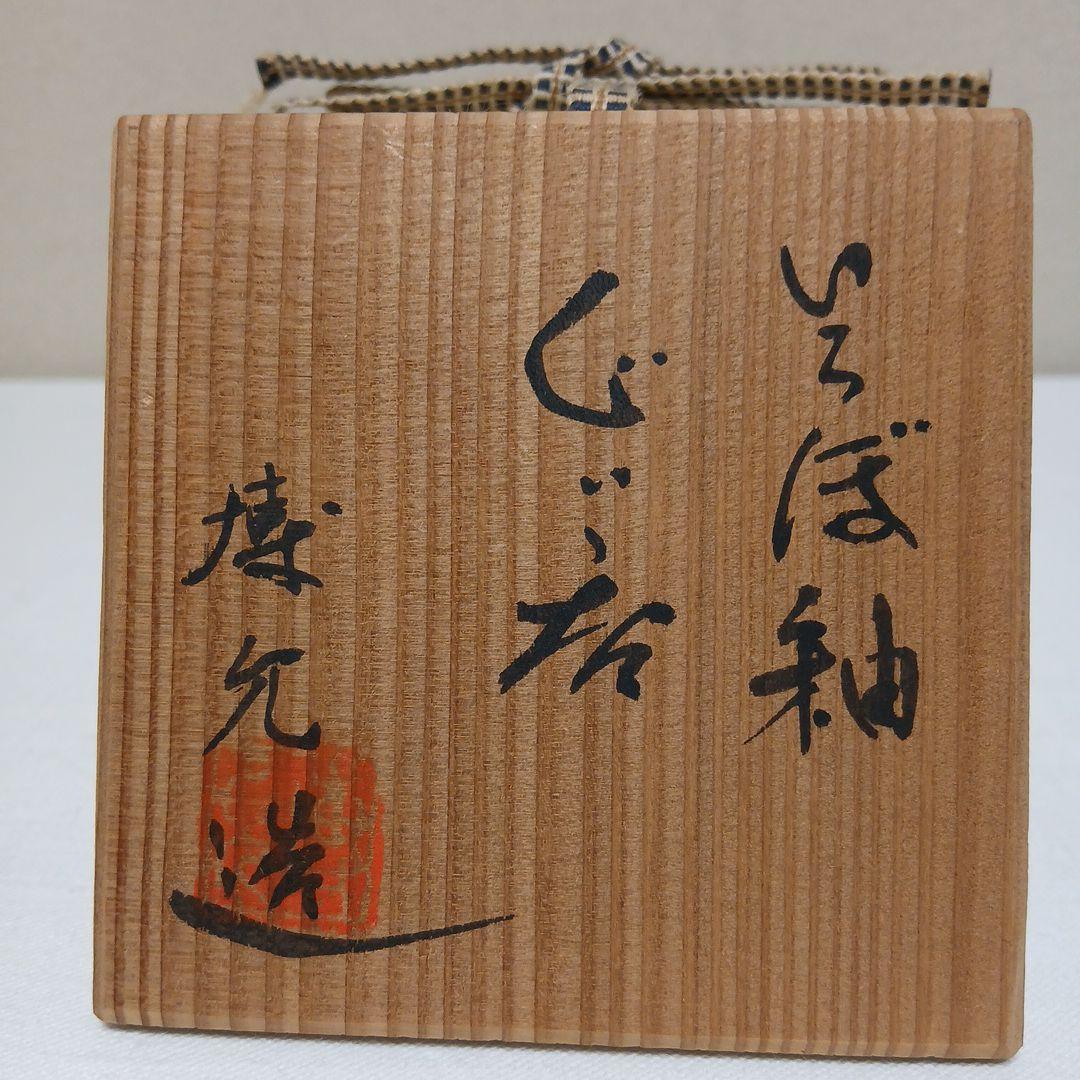 いらぼ釉
ぐい呑
博允造